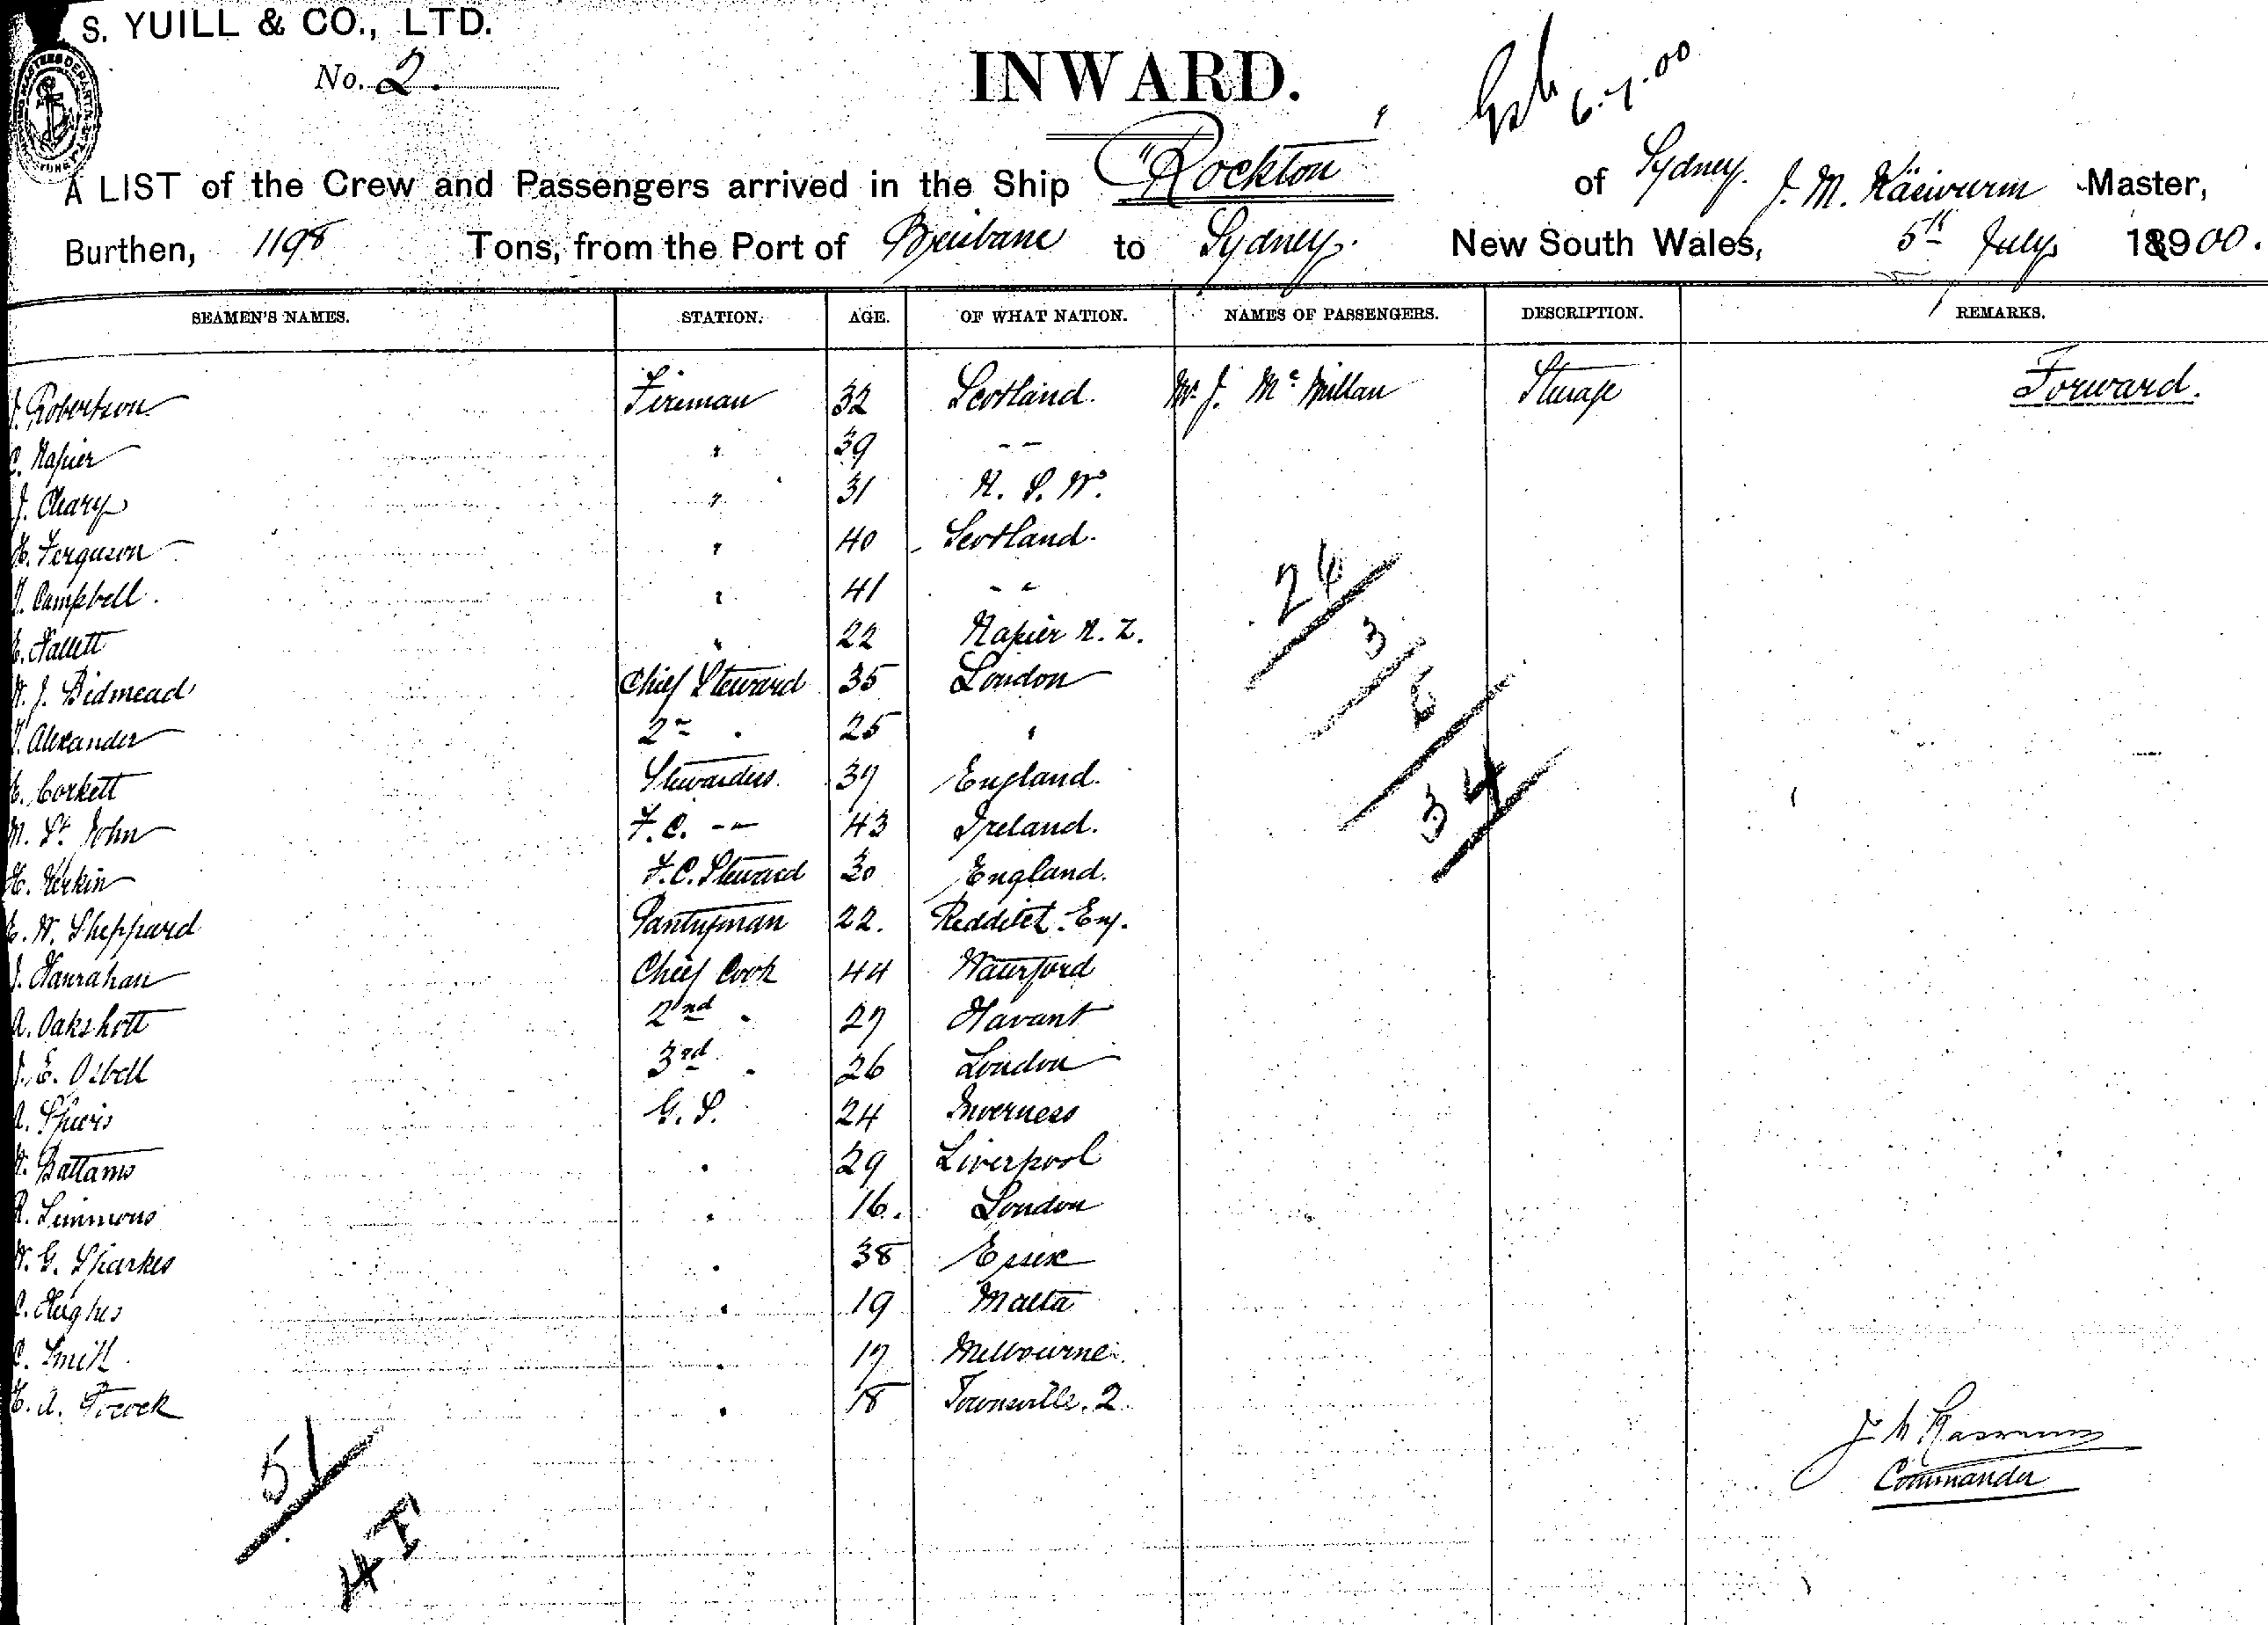 S. YUILL & CO., LTD.
No. 2.
INWARD.
6.7.00
A LIST of the Crew and Passengers arrived in the Ship "Rockton" of Sydney. J. M. Käsiwurm Master,
Burthen, 1198 Tons, from the Port of Brisbane to Sydney. New South Wales, 5th July 18900.
SEAMEN'S NAMES. STATION. AGE. OF WHAT NATION. NAMES OF PASSENGERS. DESCRIPTION. REMARKS.
J. Robertson Fireman 32 Scotland. Mr. J. McMillan Steerage Forward.
C. Napier " 39 " "
J. Cleary " 31 N. S. W.
H. Ferguson " 40 Scotland.
Campbell. " 41 " "
E. Hallett " 22 Napier N. Z.
W. J. Bidmead Chief Steward 35 London
Alexander 2nd " 25 "
E. Corkett Stewardess. 37 England.
M. St. John F.C. " " 43 Ireland.
H. Kerkin F.C. Steward 30 England.
E. W. Sheppard Pantryman 22. Redditch. Eng.
J. Hanrahan Chief Cook 44 Waterford
A. Oakshott 2nd " 27 Havant
J. E. Isbell 3rd " 26 London
A. Spiers G. S. 24 Inverness
Battams " 29 Liverpool
R. Simmons " 16. London
W. G. Sparkes " 38 Essex
C. Hughes " 19 Malta
C. Smith " 17 Melbourne.
H. A. Pocock " 18 Townsville. Q.
24
3
34
51
4 F
Commander